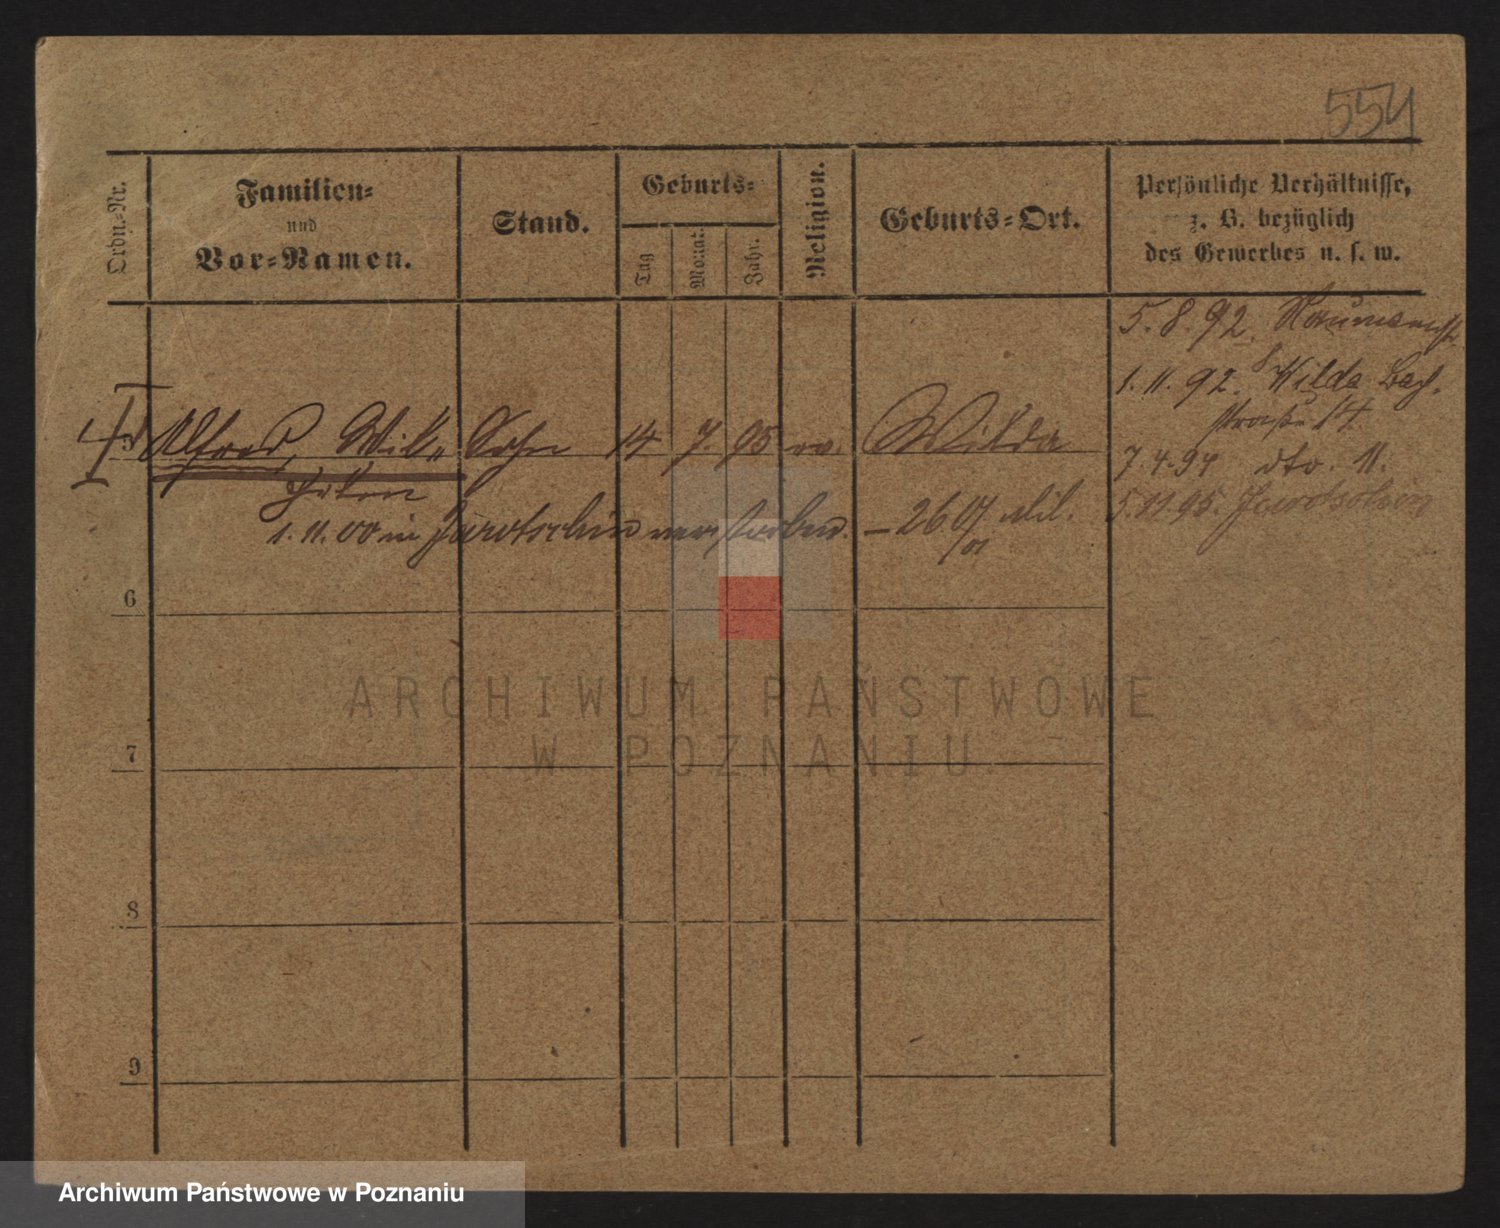 554
Ordn.-Nr.
Familien-
und
Vor-Namen.
Stand.
Geburts-
Tag
Monat
Jahr.
Religion.
Geburts-Ort.
Persönliche Verhältnisse,
z. B. bezüglich
des Gewerbes u. s. w.
5. 8. 92.
1. 11. 92. Wilda Bach-
straße 14.
Alfred, Wil- Sohn 14 7. 95 ev. Wilda
7. 4. 94 dto. 11.
5. 11. 95. Jarotschin
1. 11. 00 in Jarotschin verstorben. - 26
6
ARCHIWUM PAŃSTWOWE
W POZNANIU
7
8
9
Archiwum Państwowe w Poznaniu